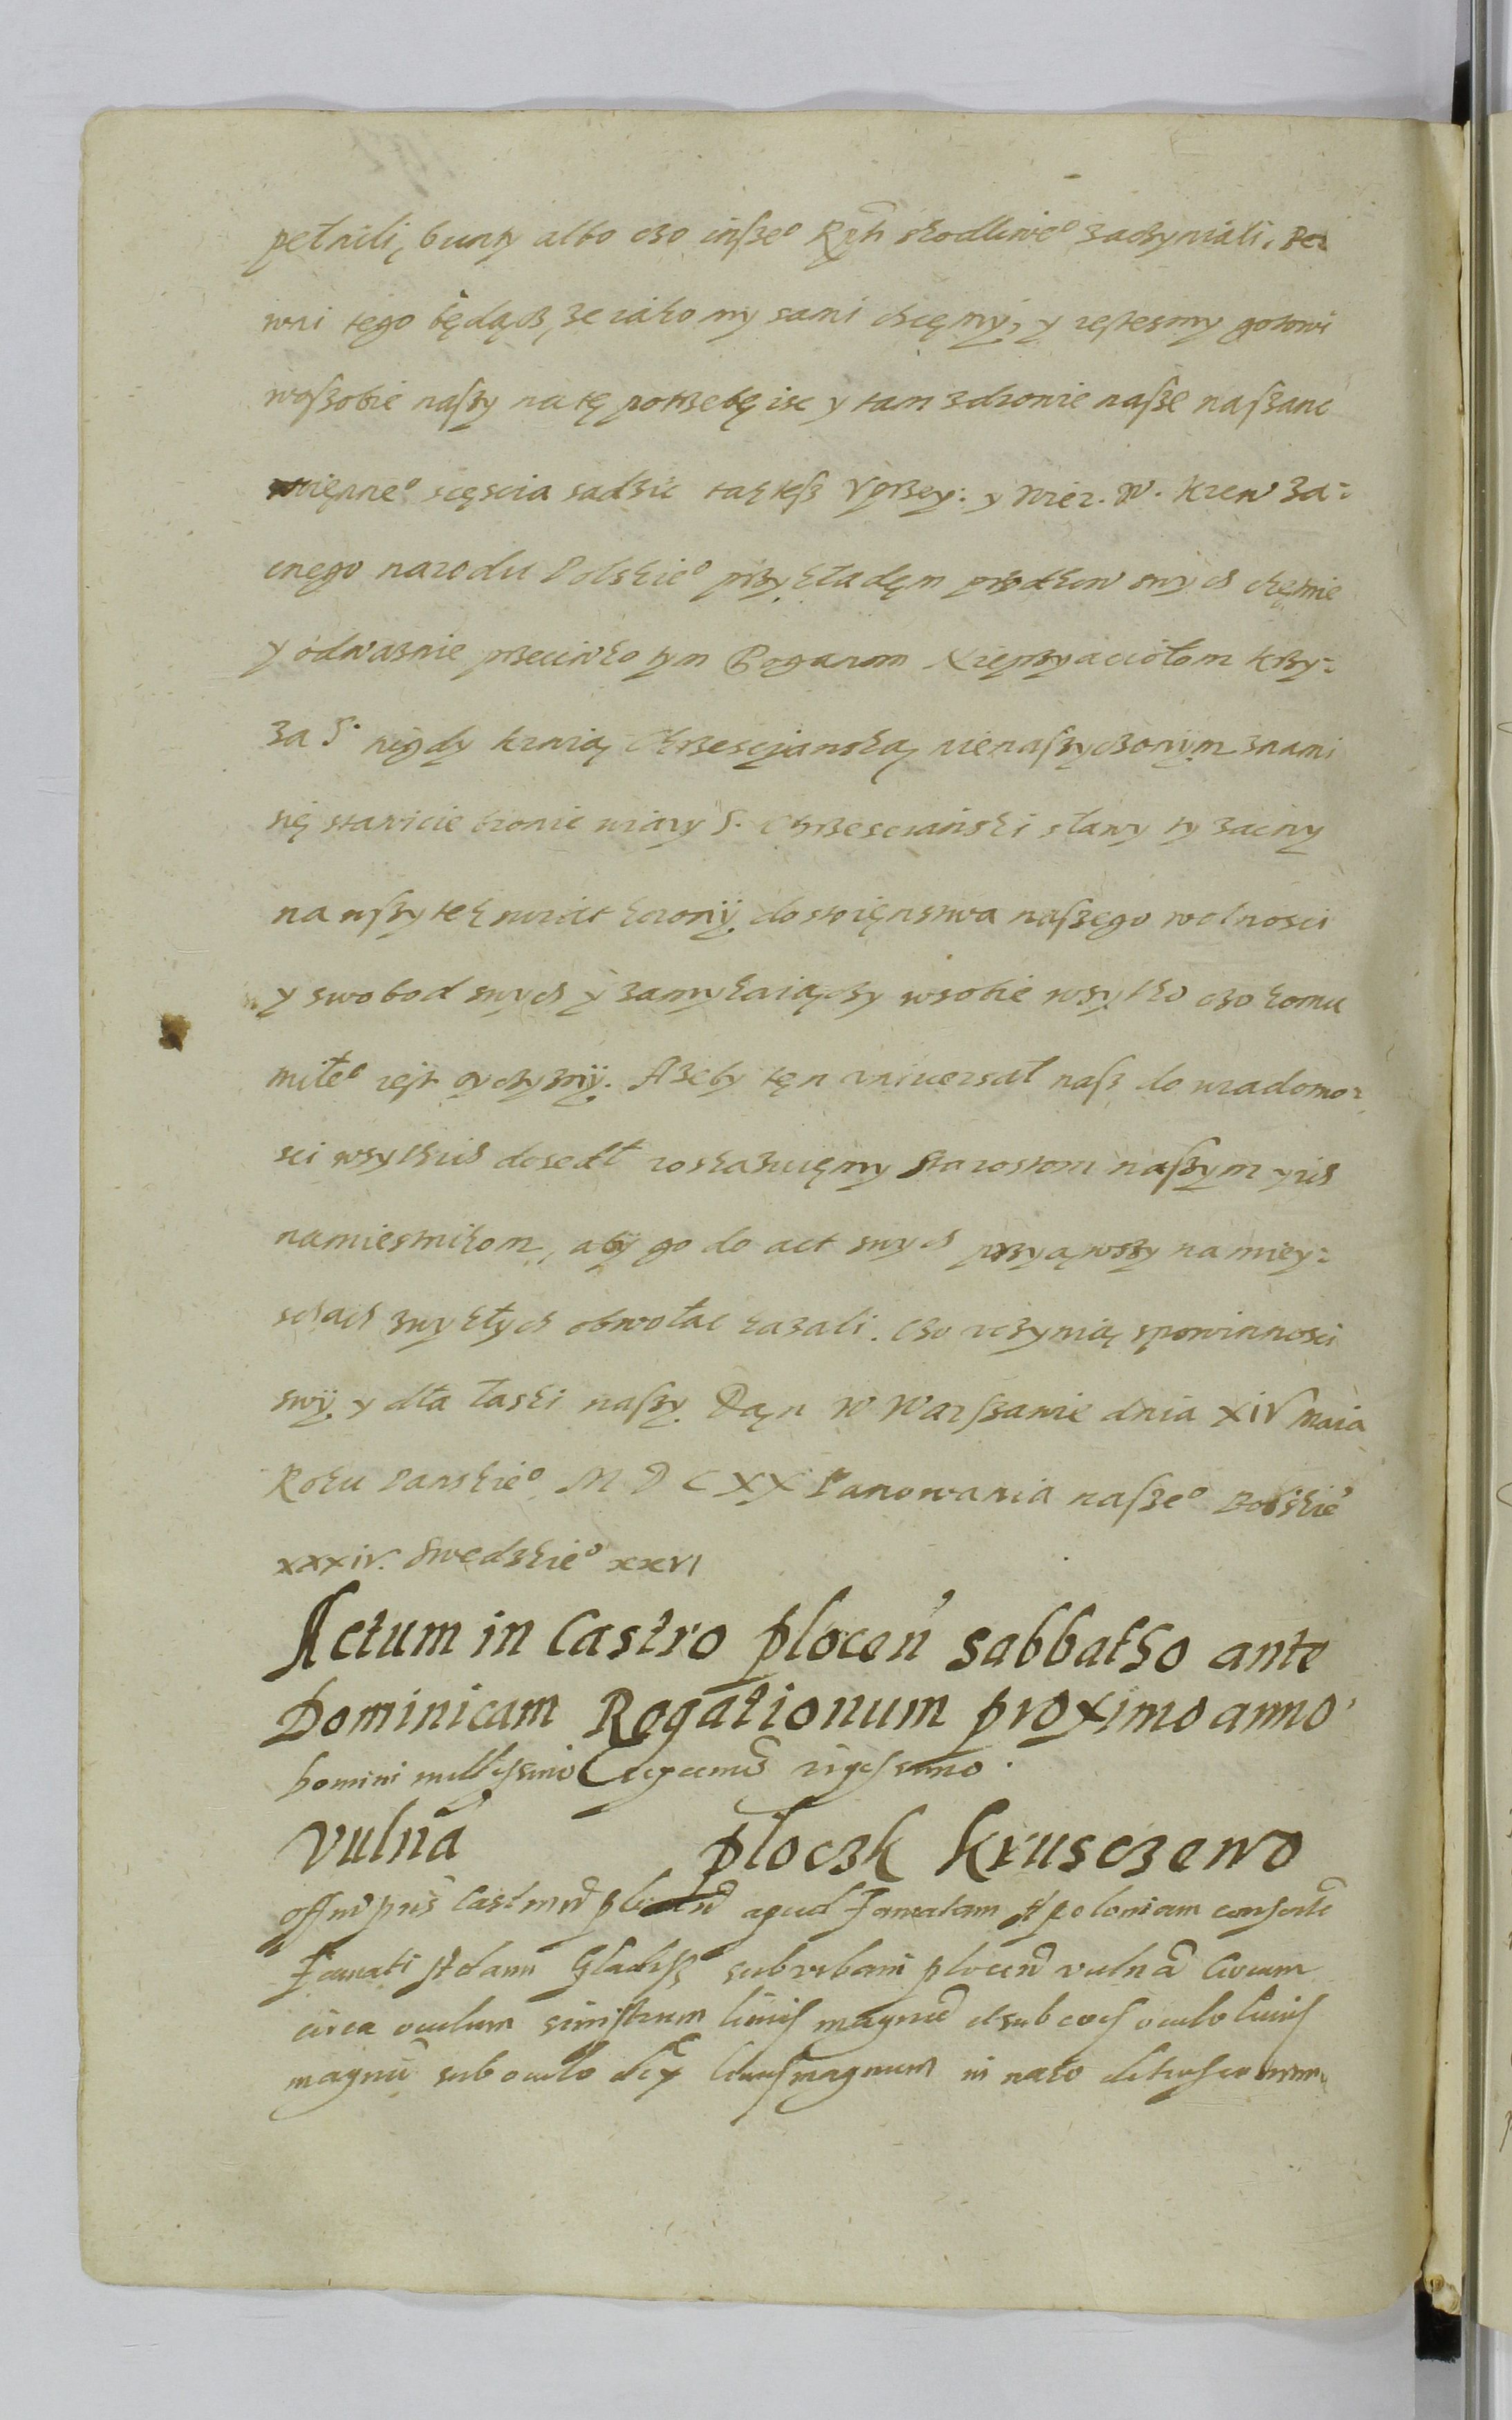 pełnili, bunty albo czo inßeº Rptı skodliweº zaczyniali. Pe=
wni tego będącz, ze iako my sami chcęmy, y iestesmy gotowi
woßobie naßy na tę potrzebę isc y tam zdrowie naße na ßanc
sczięscia sadzic tak teß Vprzey: y Wier. W. krew Za=
cnego narodu Polskieº przykładęm przodkow swych chętnie
y odwaznie przeciwko tym Poganom Nieprzyaciołom krzy=
za S. nigdy krwią Chrzescijanską nienaßyczonym znami
się stawicie bronic wiary S. Chrzescianski sławy ty zacny
na wßytek swiat korony dostoięnstwa naßego wolnosci
y swobod swych y zamykaiączy wsobie wsytko czo komu
miłeº iest oyczyzny. Azeby tęn vniuersał naß do wiadomo=
sci wsytkich dosedł roskazuięmy Starostom naßym y ich
namiesnikom, aby go do act swych przyąwszy na miey=
scach zwykłych obwołac kazali. Czo vczynią spowinnosci
swy y dla łaski naßy. Dan W Warßawie dnia XIV Maia
Roku Panskieº M D C XX Panowania naßeº Polskieº
XXXIV. Swedzkieº XXVI
Actum in Castro plocen̄ sabbatho ante
Dominicam Rogationum proximo anno
Domini millesimo sexcent̃ vigesimo.
Vulña ploczk krusczewo
Off̃m p̃ns Castren̄ plocen̄ apud Famatam Apoloniam consortẽ
Famati Adami Gladyß suburbani plocen̄ vulña
circa oculum sinistrum liuis magnũ et sub eod oculo liuis
magnũ sub oculo dex liuis magnum in naso